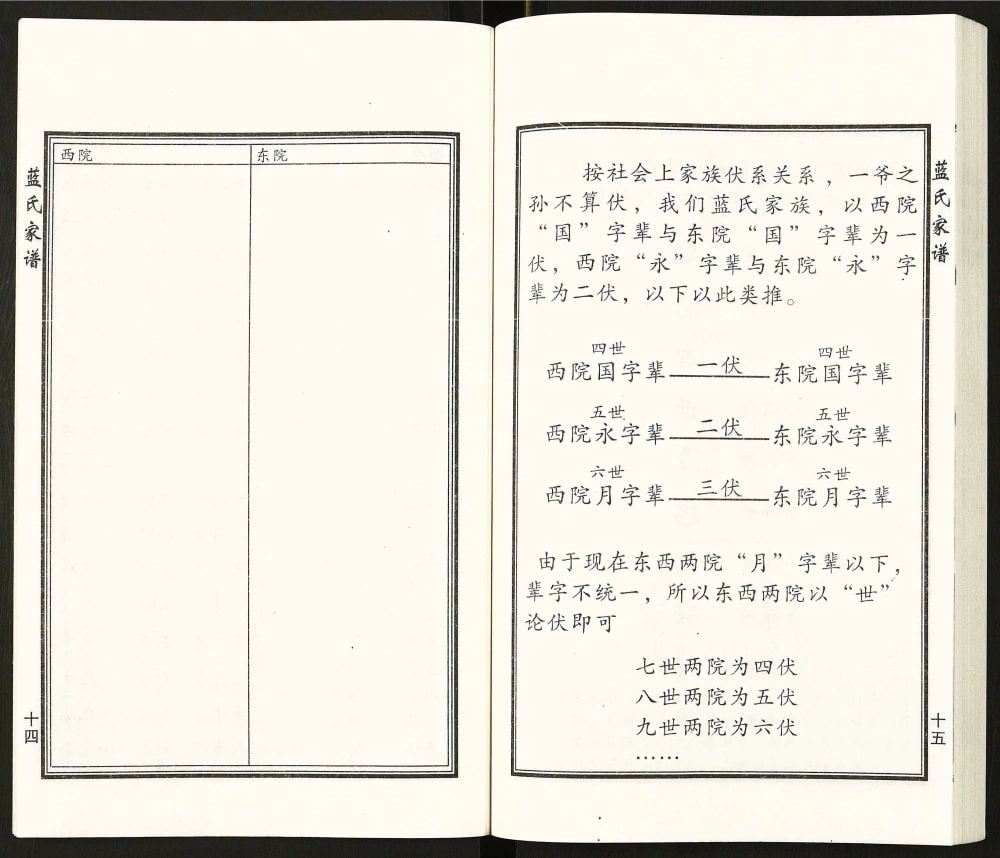 蓝氏家谱
西院
东院
十四
蓝氏家谱
按社会上家族伏系关系，一爷之
孙不算伏，我们蓝氏家族，以西院
“国”字辈与东院“国”字辈为一
伏，西院“永”字辈与东院“永”字
辈为二伏，以下以此类推。
四世 四世
西院国字辈 一伏 东院国字辈
五世 五世
西院永字辈 二伏 东院永字辈
六世 六世
西院月字辈 三伏 东院月字辈
由于现在东西两院“月”字辈以下，
辈字不统一，所以东西两院以“世”
论伏即可
七世两院为四伏
八世两院为五伏
九世两院为六伏
……
十五